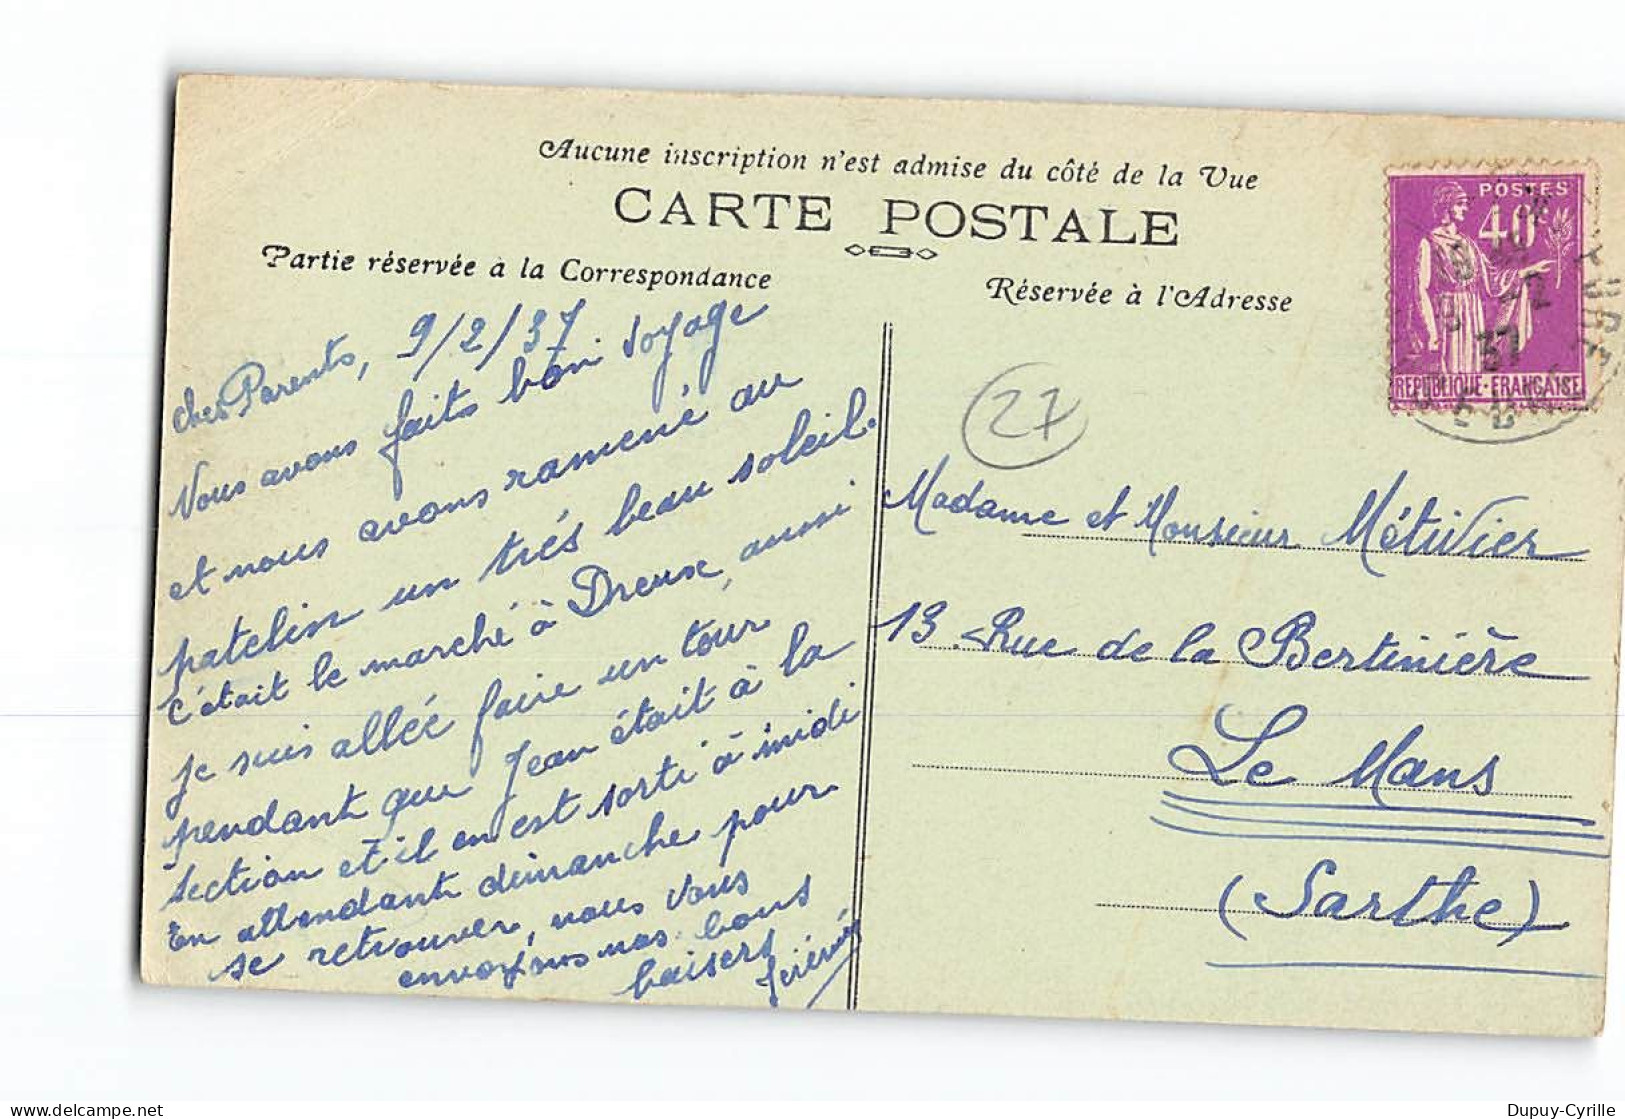 Aucune inscription n'est admise du côté de la Vue
CARTE POSTALE
Partie réservée à la Correspondance
Réservée à l'Adresse
POSTES
40
REPUBLIQUE-FRANÇAISE
37
27
Chers Parents, 9/2/37
Nous avons faits bon voyage
et nous avons ramené au
patelin un trés beau soleil.
C'était le marché à Dreux, aussi
je suis allée faire un tour
pendant que Jean était à la
section et il en est sorti à midi
En attendant dimanche pour
se retrouver, nous vous
envoyons nos bons
baisers
Madame et Monsieur Métivier
13 Rue de la Bertinière
Le Mans
(Sarthe)
Dupuy-Cyrille
delcampe.net